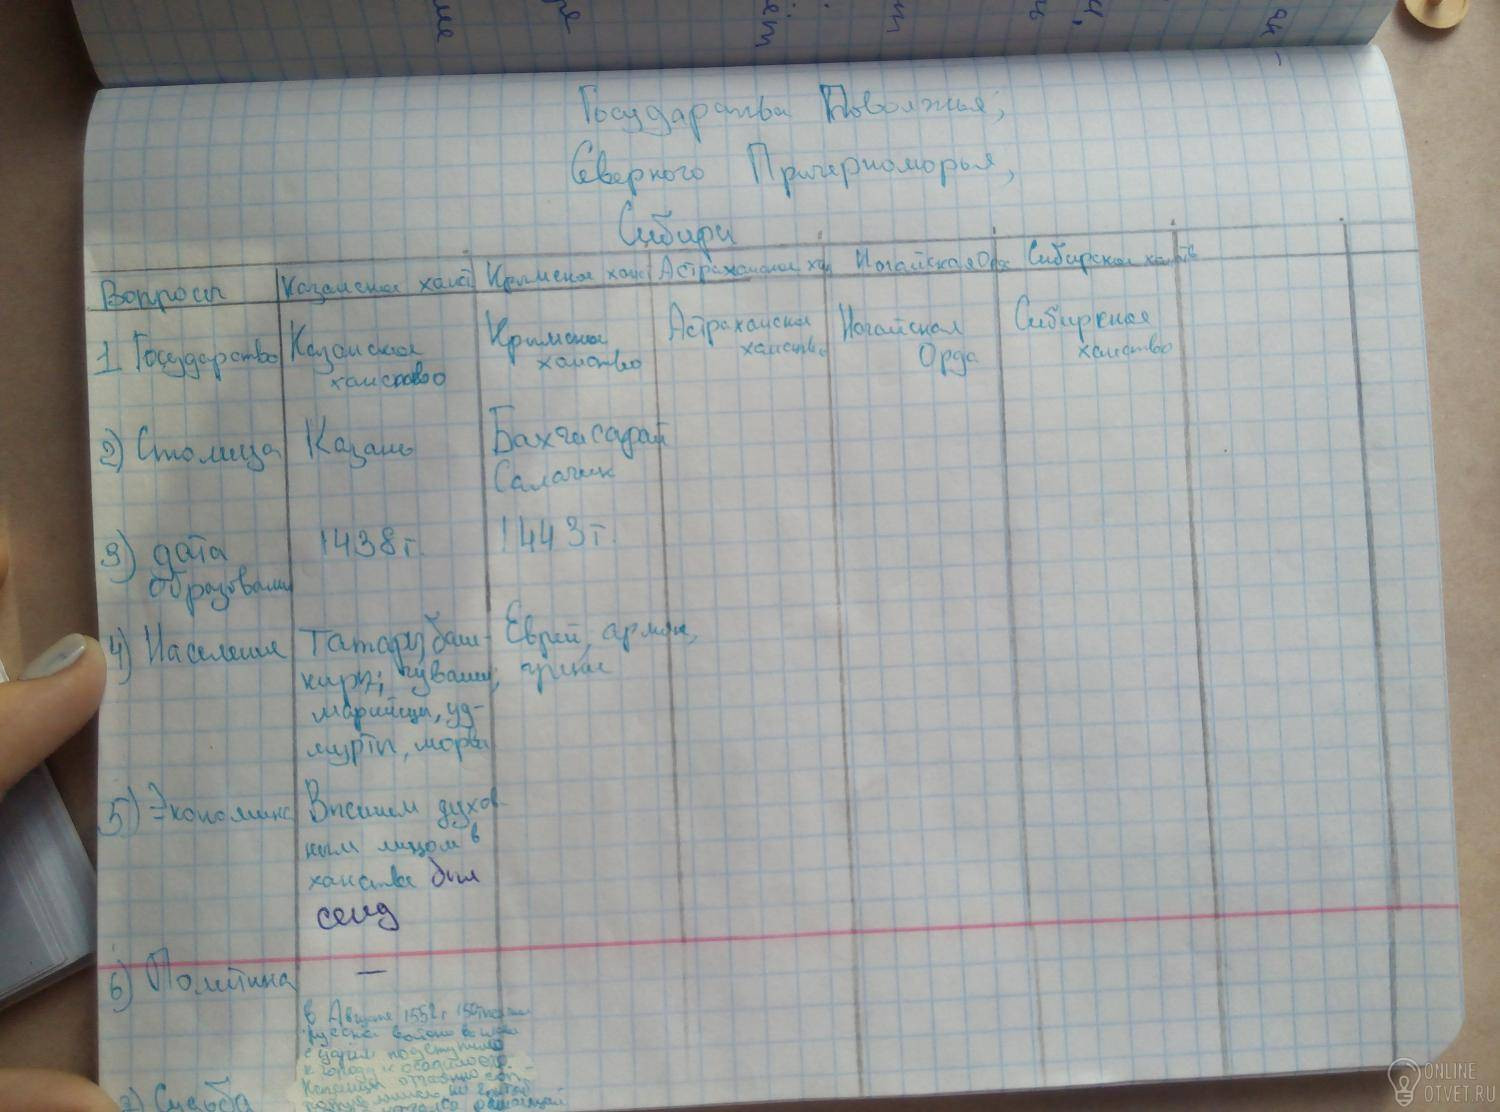 Государства Поволжья,
Северного Причерноморья,
Сибири
Вопросы Казанское ханст Крымское ханс Астраханское ха Ногайская Орд Сибирское ханств
1 Государство Казанское ханстово Крымское ханство Астраханское ханство Ногайская Орда Сибирская ханство
2) Столица Казань Бахчисарай
Салачик
3) дата 1438 г. 1443 г.
образования
4) Население Татары, баш- Евреи, армян,
киры, чуваши, греки
марийцы, уд-
мурты, морв
5) Экономика Высшем духов-
ным лицом в
ханства был
сеид
6) Политика —
в Августе 1552 г. 150
русское войско
подступило
к городу и осадило его.
Казанцы отчаянно соп-
7) Судьба
ONLINE
OTVET.RU